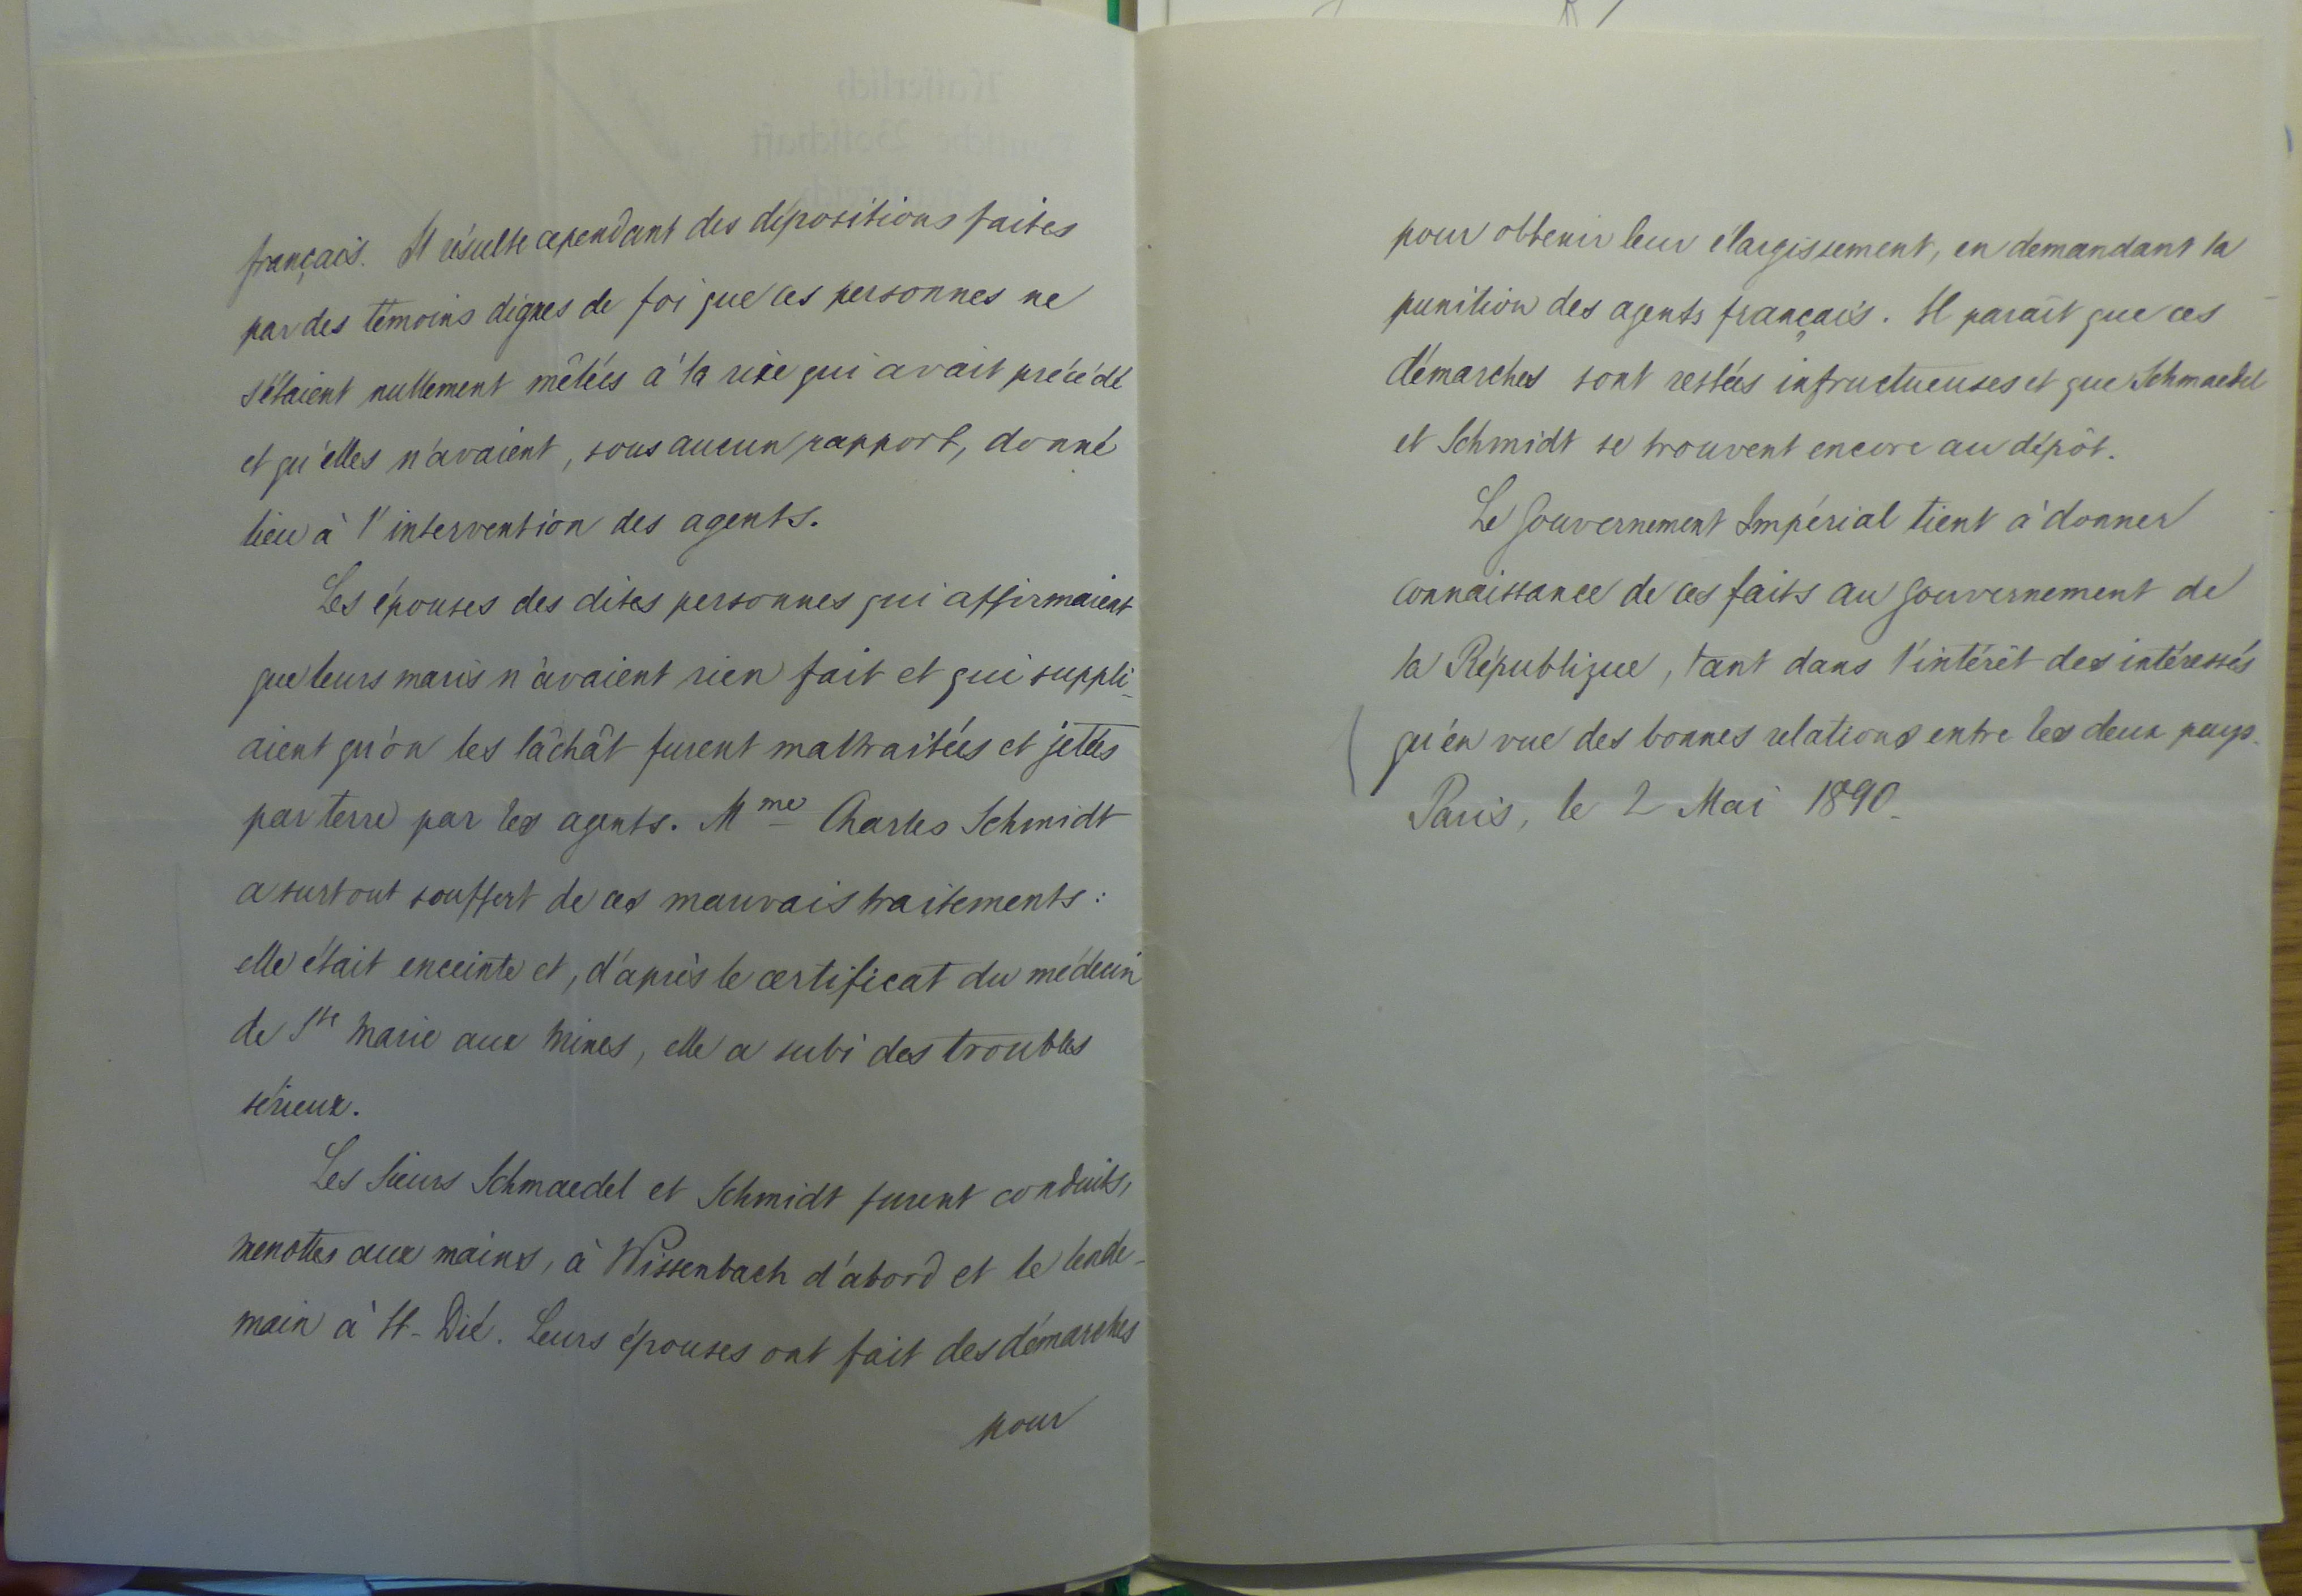 français. Il résulte cependant des dépositions faites
par des témoins dignes de foi que ces personnes ne
s'étaient nullement mêlées à la rixe qui avait précédé
et qu'elles n'avaient, sous aucun rapport, donné
lieu à l'intervention des agents.
Les épouses des dites personnes qui affirmaient
que leurs maris n'avaient rien fait et qui suppli-
aient qu'on les lâchât furent maltraitées et jetées
par terre par les agents. Mme Charles Schmidt
a surtout souffert de ces mauvais traitements :
elle était enceinte et, d'après le certificat du médecin
de Ste Marie aux Mines, elle a subi des troubles
sérieux.
Les Sieurs Schmaedel et Schmidt furent conduits,
menottes aux mains, à Wissenbach d'abord et le lende-
main à St-Dié. Leurs épouses ont fait des démarches
pour
pour obtenir leur élargissement, en demandant la
punition des agents français. Il paraît que ces
démarches sont restées infructueuses et que Schmaedel
et Schmidt se trouvent encore au dépôt.
Le Gouvernement Impérial tient à donner
connaissance de ces faits au Gouvernement de
la République, tant dans l'intérêt des intéressés
qu'en vue des bonnes relations entre les deux pays.
Paris, le 2 Mai 1890.